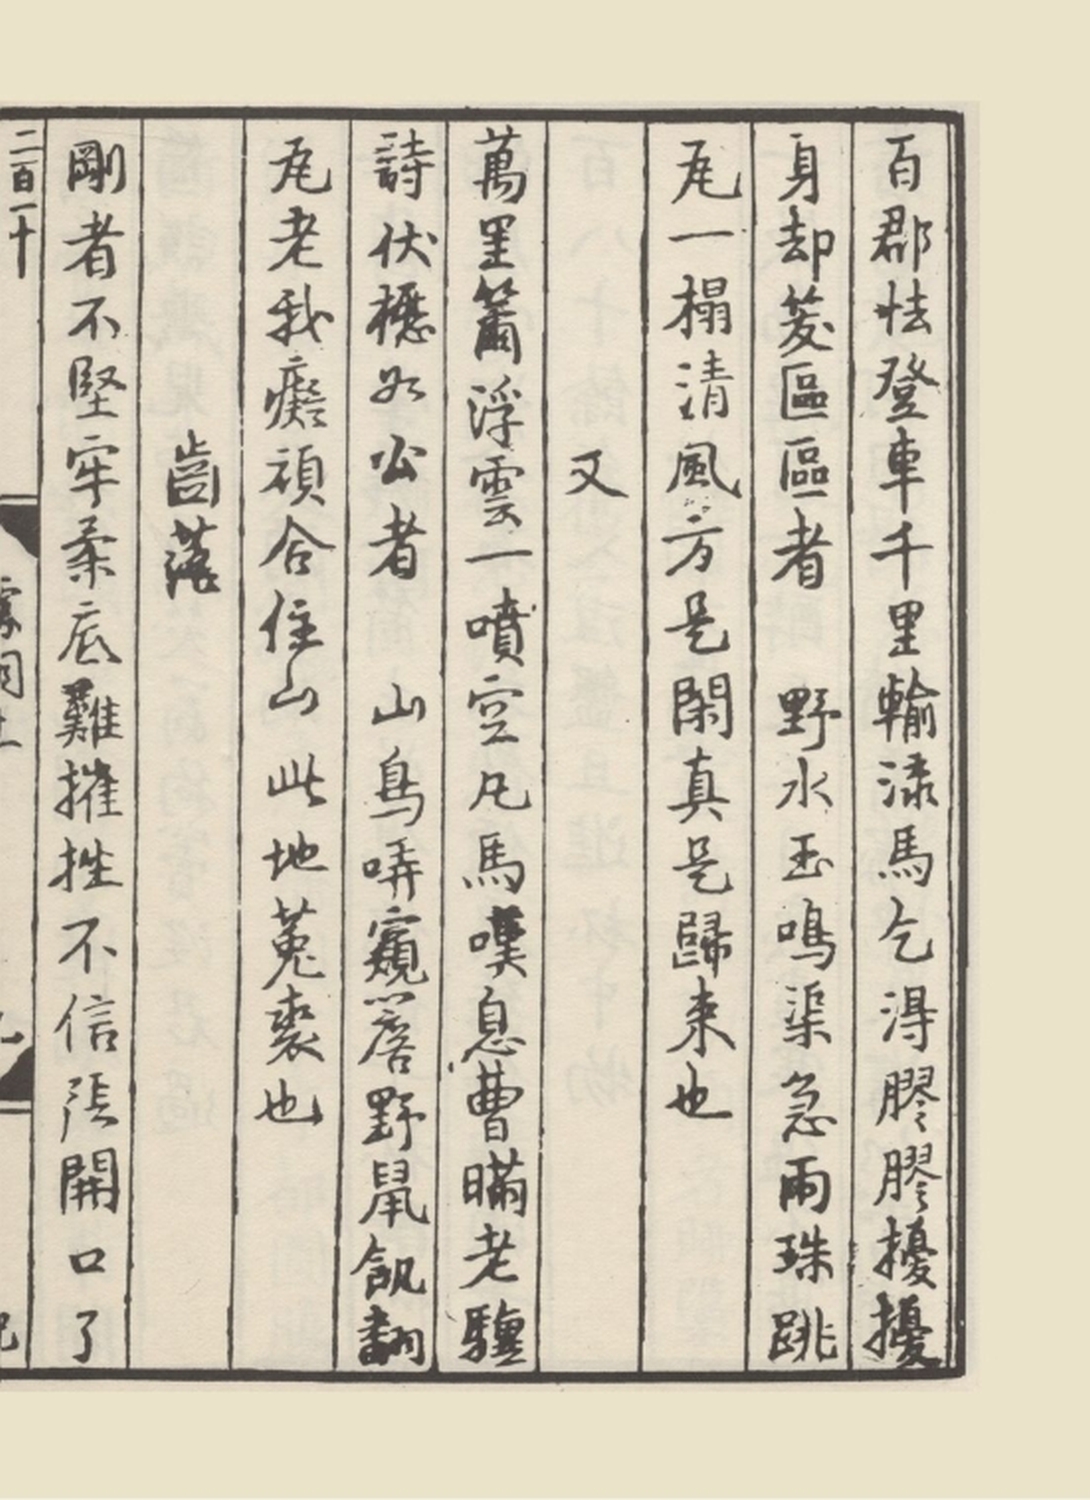 百郡怯登車千里輸流馬乞得膠膠擾擾
身却笑區區者　野水玉鳴渠急雨珠跳
瓦一榻清風方是閑真是歸來也
又
萬里籋浮雲一噴空凡馬嘆息曹瞞老驥
詩伏櫪如公者　山鳥哢窺簷野鼠飢翻
瓦老我癡頑合住山　此地菟裘也
齒落
剛者不堅牢柔底難摧挫不信張開口了
二百一十